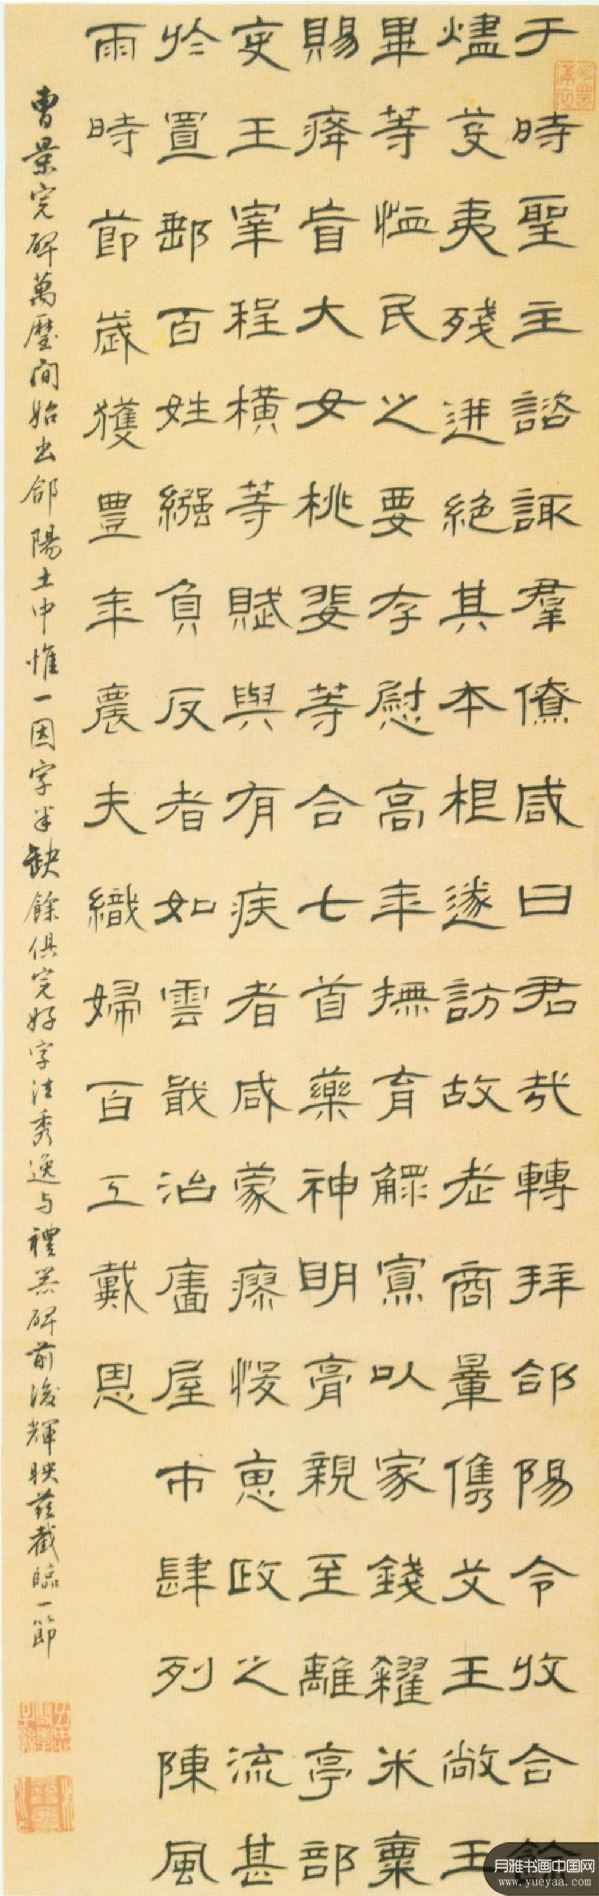 于時聖主諮諏羣僚咸曰君哉轉拜郃陽令收合餘
燼芟夷殘迸絕其本根遂訪故老商暈儁艾王敞王
畢等恤民之要存慰高年撫育鰥寡以家錢糴米粟
賜癃盲大女桃婓等合七首藥神明膏親至離亭部
吏王宰程橫等賦與有疾者咸蒙瘳悛惠政之流甚
於置郵百姓繦負反者如雲戢治廬屋市肆列陳風
雨時節歲獲豐年農夫織婦百工戴恩
曹景完碑萬歷間始出郃陽土中惟一因字半缺餘俱完好字法秀逸与禮器碑前後輝映茲截臨一節
月雅书画中国网
www.yueyaa.com